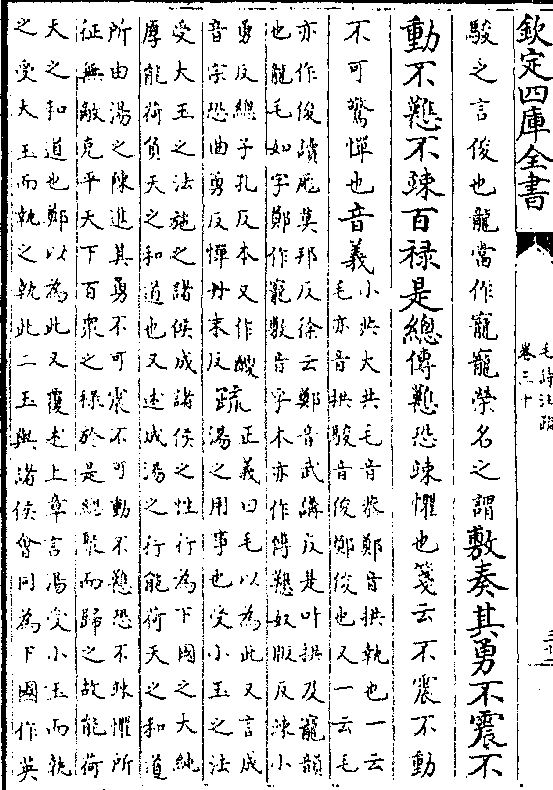 欽定四庫全書
毛詩注疏
卷三十
駿之言俊也龍當作寵寵榮名之謂敷奏其勇不震不
動不戁不竦百禄是總傳戁恐竦懼也箋云不震不動
不可驚憚也音義小共大共毛音恭鄭音拱執也一云
毛亦音拱駿音俊鄭俊也又一云毛
亦作俊讀厖莫邦反徐云鄭音武講反是叶拱及寵韻
也龍毛如字鄭作寵敷音孚本亦作傅戁奴版反竦小
勇反緫子孔反本又作㚇疏正義曰毛以為此又言成
音字恐曲勇反憚丹末反湯之用事也受小玉之法
受大玉之法施之諸侯成諸侯之性行為下國之大純
厚能荷負天之和道也又述成湯之行能荷天之和道
所由湯之陳進其勇不可震不可動不戁恐不竦懼所
征無敵克平天下百衆之禄於是緫聚而歸之故能荷
天之和道也鄭以為此又覆述上章言湯受小玉而執
之受大玉而執之執此二玉與諸侯會同為下國作英